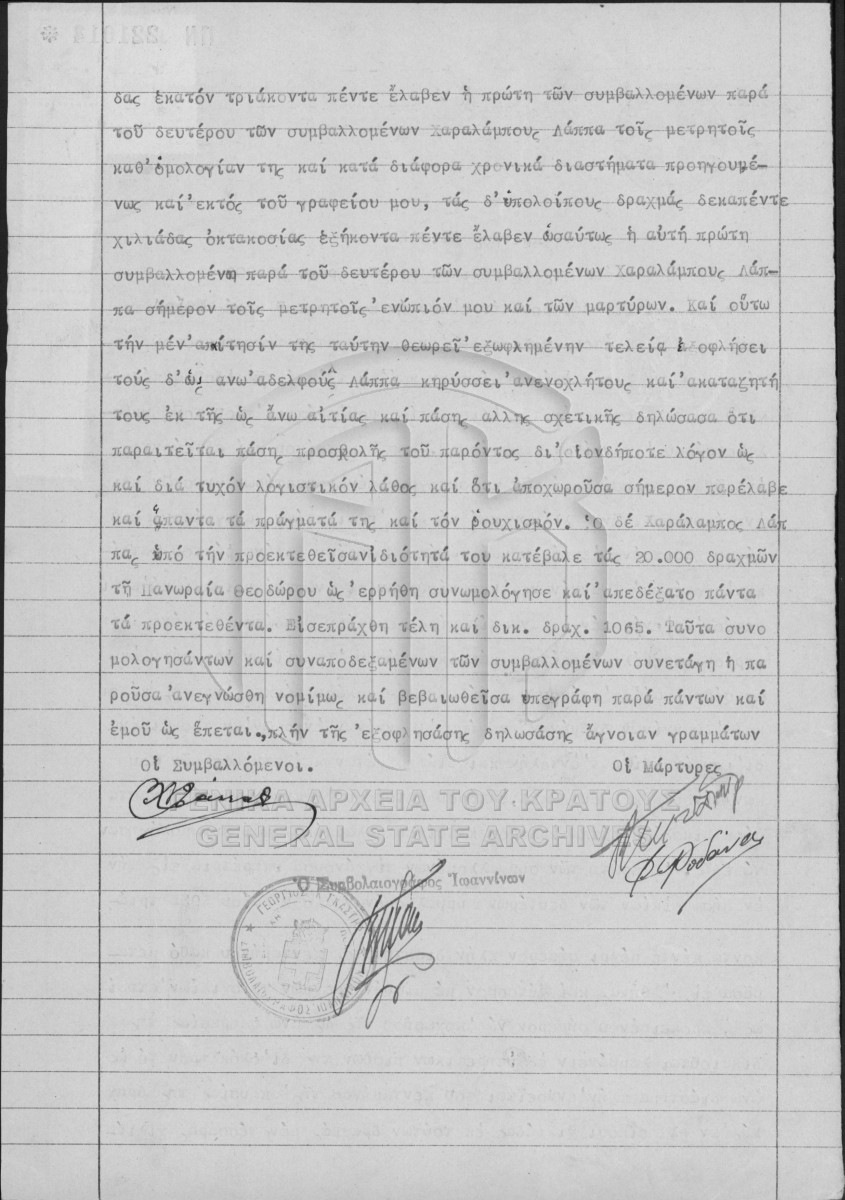 δας ἑκατόν τριάκοντα πέντε ἔλαβεν ἡ πρώτη τῶν συμβαλλομένων παρά
τοῦ δευτέρου τῶν συμβαλλομένων Χαραλάμπους Λάππα τοῖς μετρητοῖς
καθ'ὁμολογίαν της καί κατά διάφορα χρονικά διαστήματα προηγουμέ-
νως καί'εκτός τοῦ γραφείου μου, τάς δ'ὑπολοίπους δραχμάς δεκαπέντε
χιλιάδας ὀκτακοσίας ἑξήκοντα πέντε ἔλαβεν ὡσαύτως ἡ αὐτή πρώτη
συμβαλλομένη παρά τοῦ δευτέρου τῶν συμβαλλομένων Χαραλάμπους Λάπ-
πα σήμερον τοῖς μετρητοῖς'ενώπιόν μου καί τῶν μαρτύρων. Καί οὕτω
τήν μέν'απαίτησίν της ταύτην θεωρεῖ'εξωφλημένην τελείᾳ ἐξοφλήσει
τούς δ'ὡς ανω'αδελφούς Λάππα κηρύσσει'ανενοχλήτους καί'ακαταζητή
τους ἐκ τῆς ὡς ἄνω αἰτίας καί πάσης αλλης σχετικῆς δηλώσασα ὅτι
παραιτεῖται πάσης προσβολῆς τοῦ παρόντος δι'οἱονδήποτε λόγον ὡς
καί διά τυχόν λογιστικόν λάθος καί ὅτι ἀποχωροῦσα σήμερον παρέλαβε
καί ἅπαντα τά πράγματά της καί τόν ρουχισμόν. Ὁ δέ Χαράλαμπος Λάπ
πας ὑπό τήν προεκτεθεῖσανἰδιότητά του κατέβαλε τάς 20.000 δραχμῶν
τῇ Πανωραία Θεοδώρου ὡς'ερρήθη συνωμολόγησε καί'απεδέξατο πάντα
τά προεκτεθέντα. Εἰσεπράχθη τέλη και δικ. δραχ. 1065. Ταῦτα συνο
μολογησάντων καί συναποδεξαμένων τῶν συμβαλλομένων συνετάγη ἡ πα
ροῦσα'ανεγνώσθη νομίμως καί βεβαιωθεῖσα ὑπεγράφη παρά πάντων καί
ἐμοῦ ὡς ἕπεται., πλήν τῆς'εξοφλησάσης δηλωσάσης ἄγνοιαν γραμμάτων
Οἱ Συμβαλλόμενοι. Οἱ Μάρτυρες
ΓΕΝΙΚΑ ΑΡΧΕΙΑ ΤΟΥ ΚΡΑΤΟΥΣ
GENERAL STATE ARCHIVES
Ὁ Συμβολαιογράφος Ἰωαννίνων